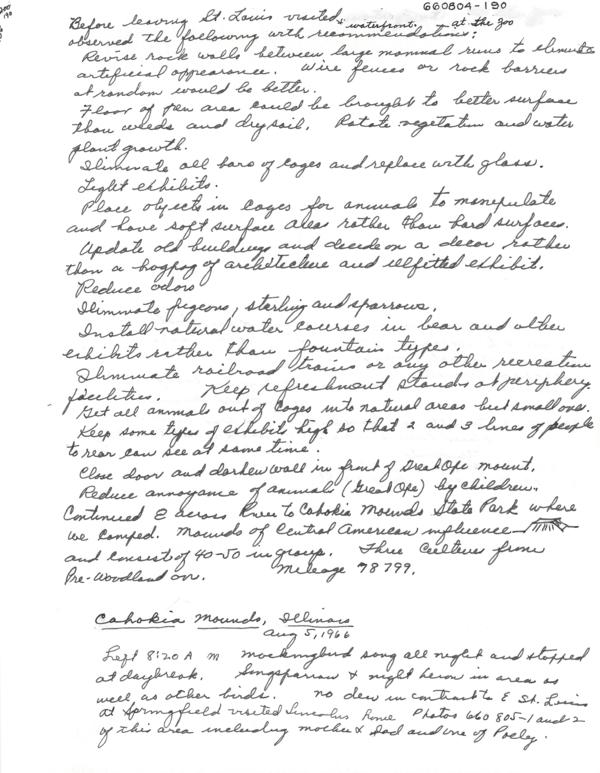 660804-190
Before leaving St. Louis visited & waterfront. at the zoo
observed the following with recommendations:
Revise rock walls between large mammal runs to eliminate
artificial appearance. Wire fences or rock barriers
at random would be better.
Floor of pen area could be brought to better surface
than weeds and dry soil. Rotate vegetation and water
plant growth.
Eliminate all bars of cages and replace with glass.
Light exhibits.
Place objects in cages for animals to manipulate
and have soft surface areas rather than hard surfaces.
Update old buildings and decide on a decor rather
than a hogpog of architecture and illfitted exhibit.
Reduce odors
Eliminate pigeons, starling and sparrows.
Install natural water courses in bear and other
exhibits rather than fountain types.
Eliminate railroad trains or any other recreation
facilities. Keep refreshment stands at periphery.
Get all animals out of cages into natural areas but small ones.
Keep some types of exhibits high so that 2 and 3 lines of people
to rear can see at same time.
Close door and darken wall in front of Great Ape mount.
Reduce annoyance of animals (Great Ape) by children.
Continued E across River to Cahokia Mounds State Park where
we camped. Mounds of Central American influence
and consist of 40-50 in group. Three cultures from
Pre-Woodland on. Mileage 78799.
Cahokia Mounds, Illinois
Aug 5, 1966
Left 8:20 A M Mockingbird song all night and stopped
at daybreak. Songsparrow & night heron in area as
well as other birds. No dew in contrast to E St. Louis
at Springfield visited Lincolns home Photos 660805-1 and 2
of this area including mother & dad and one of